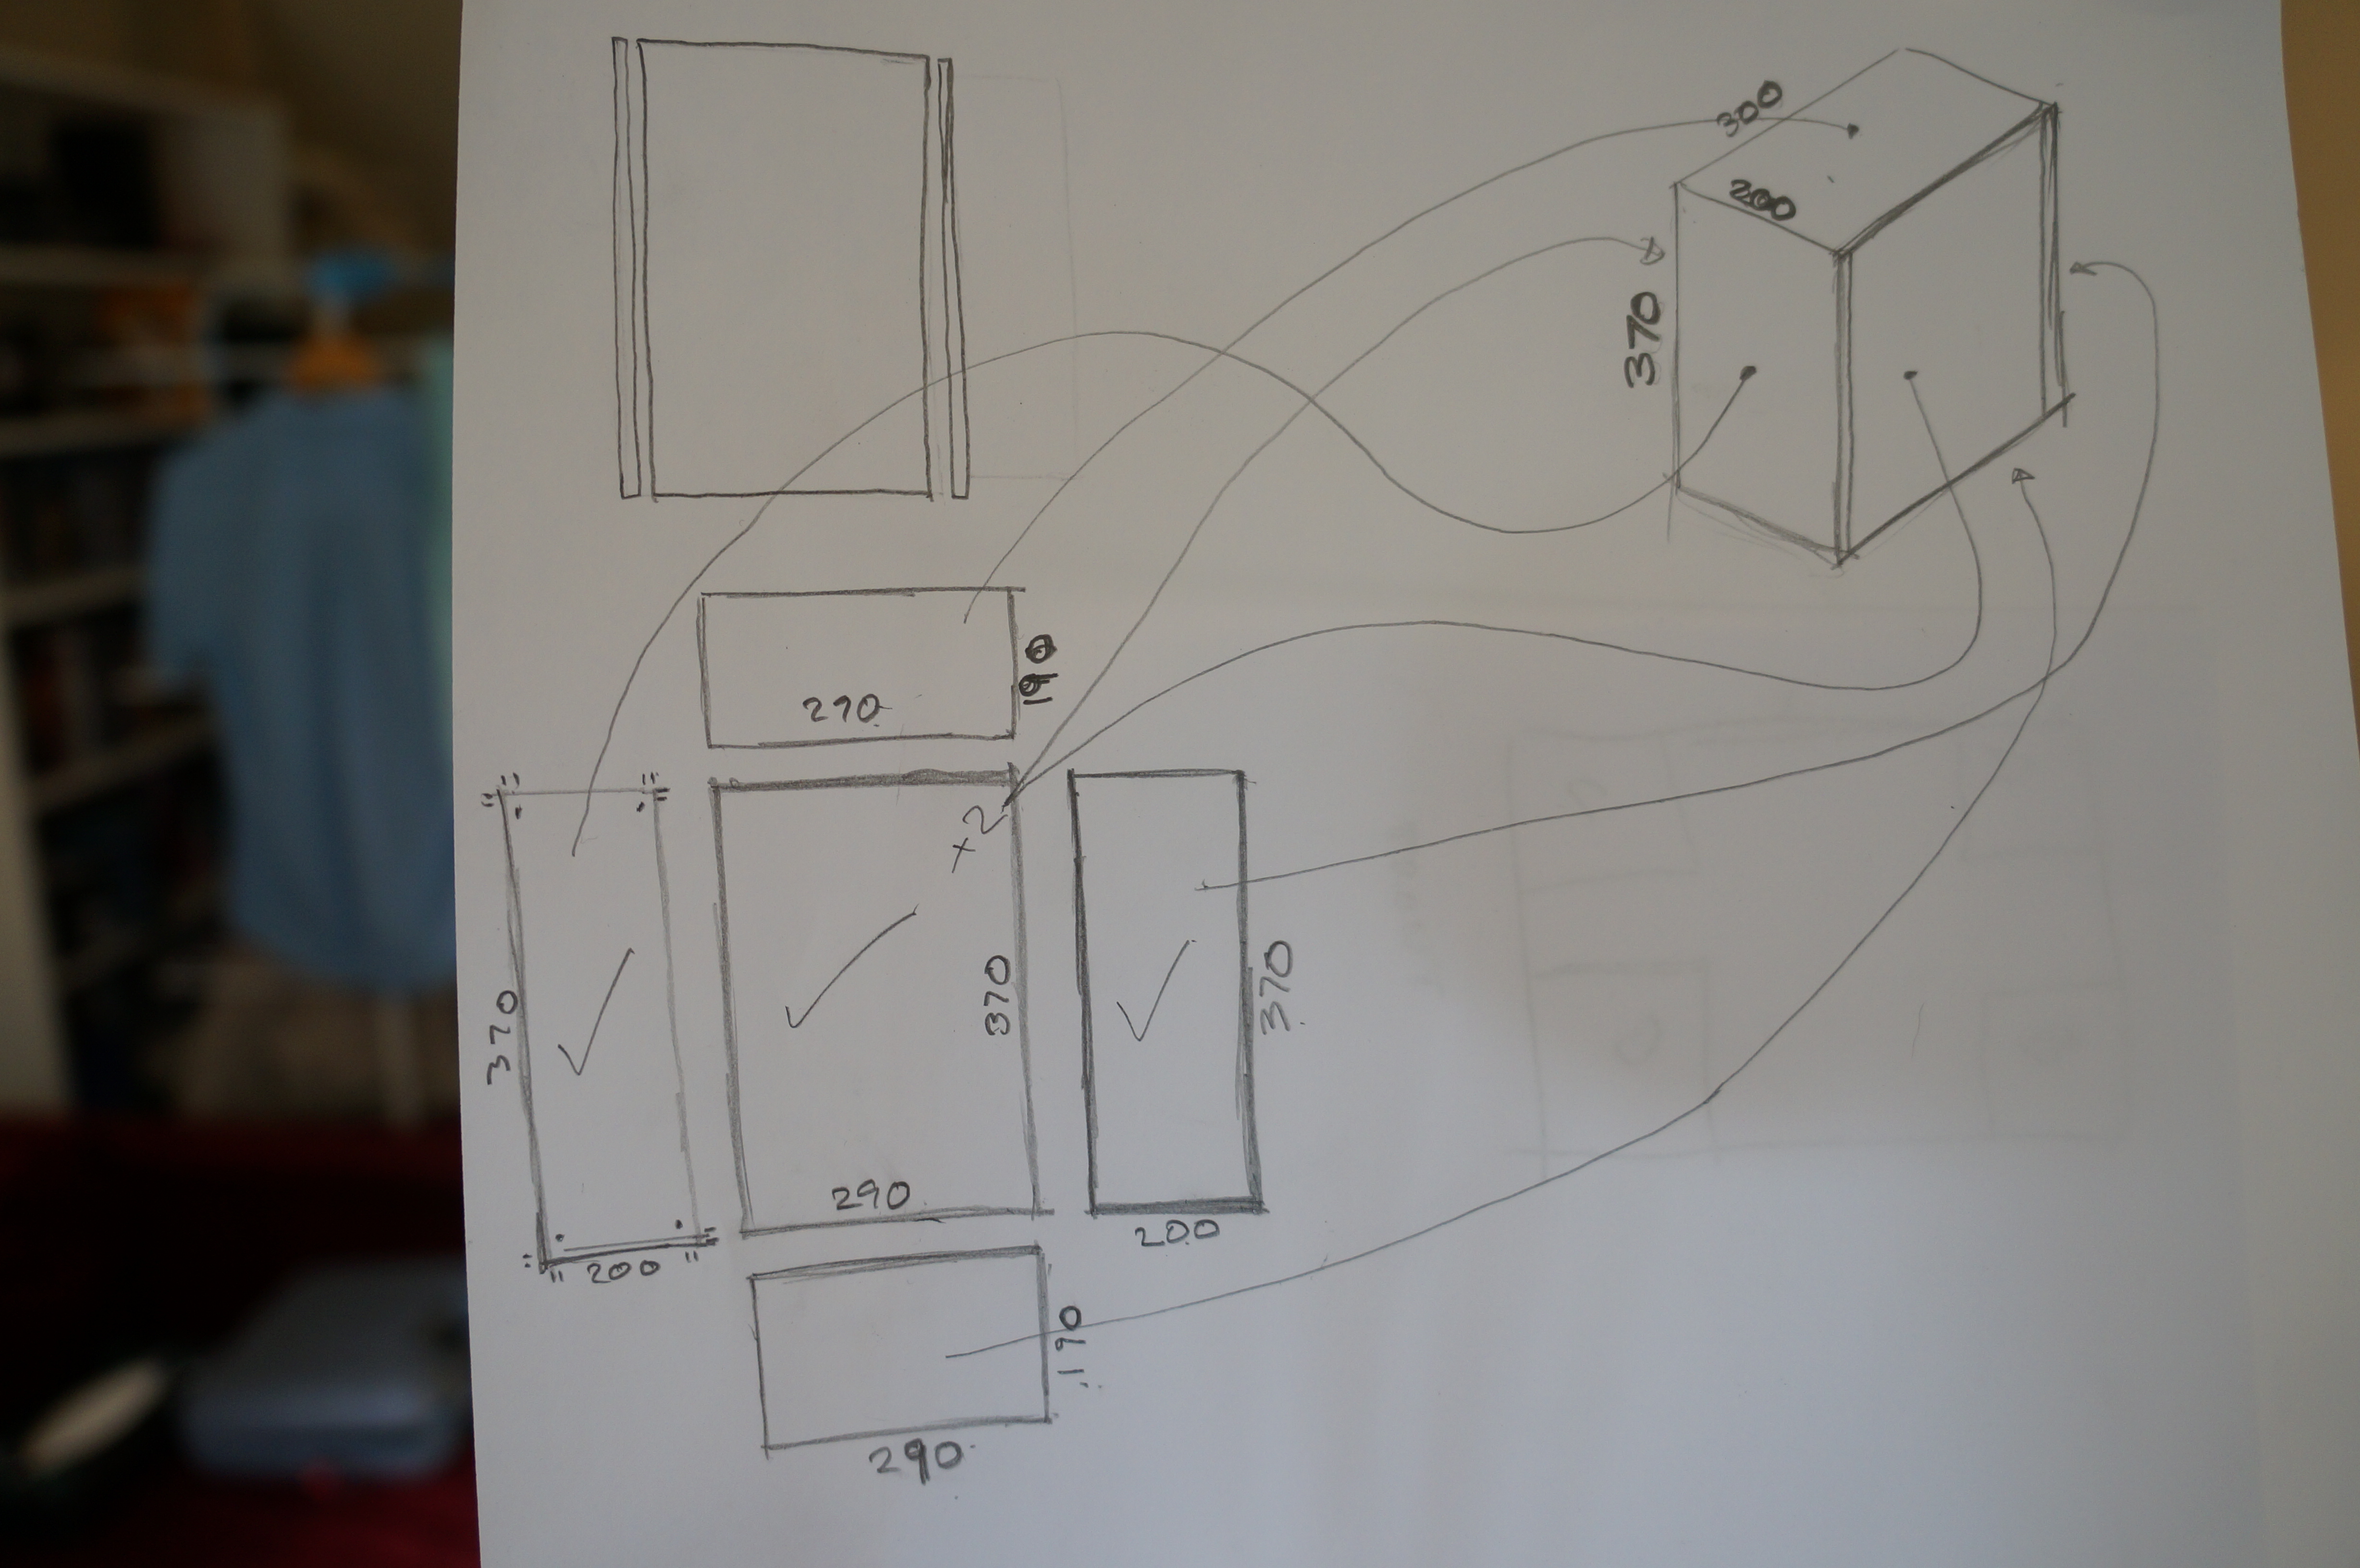 300
200
370
190
290
x2
370
370
370
290
200
200
190
290